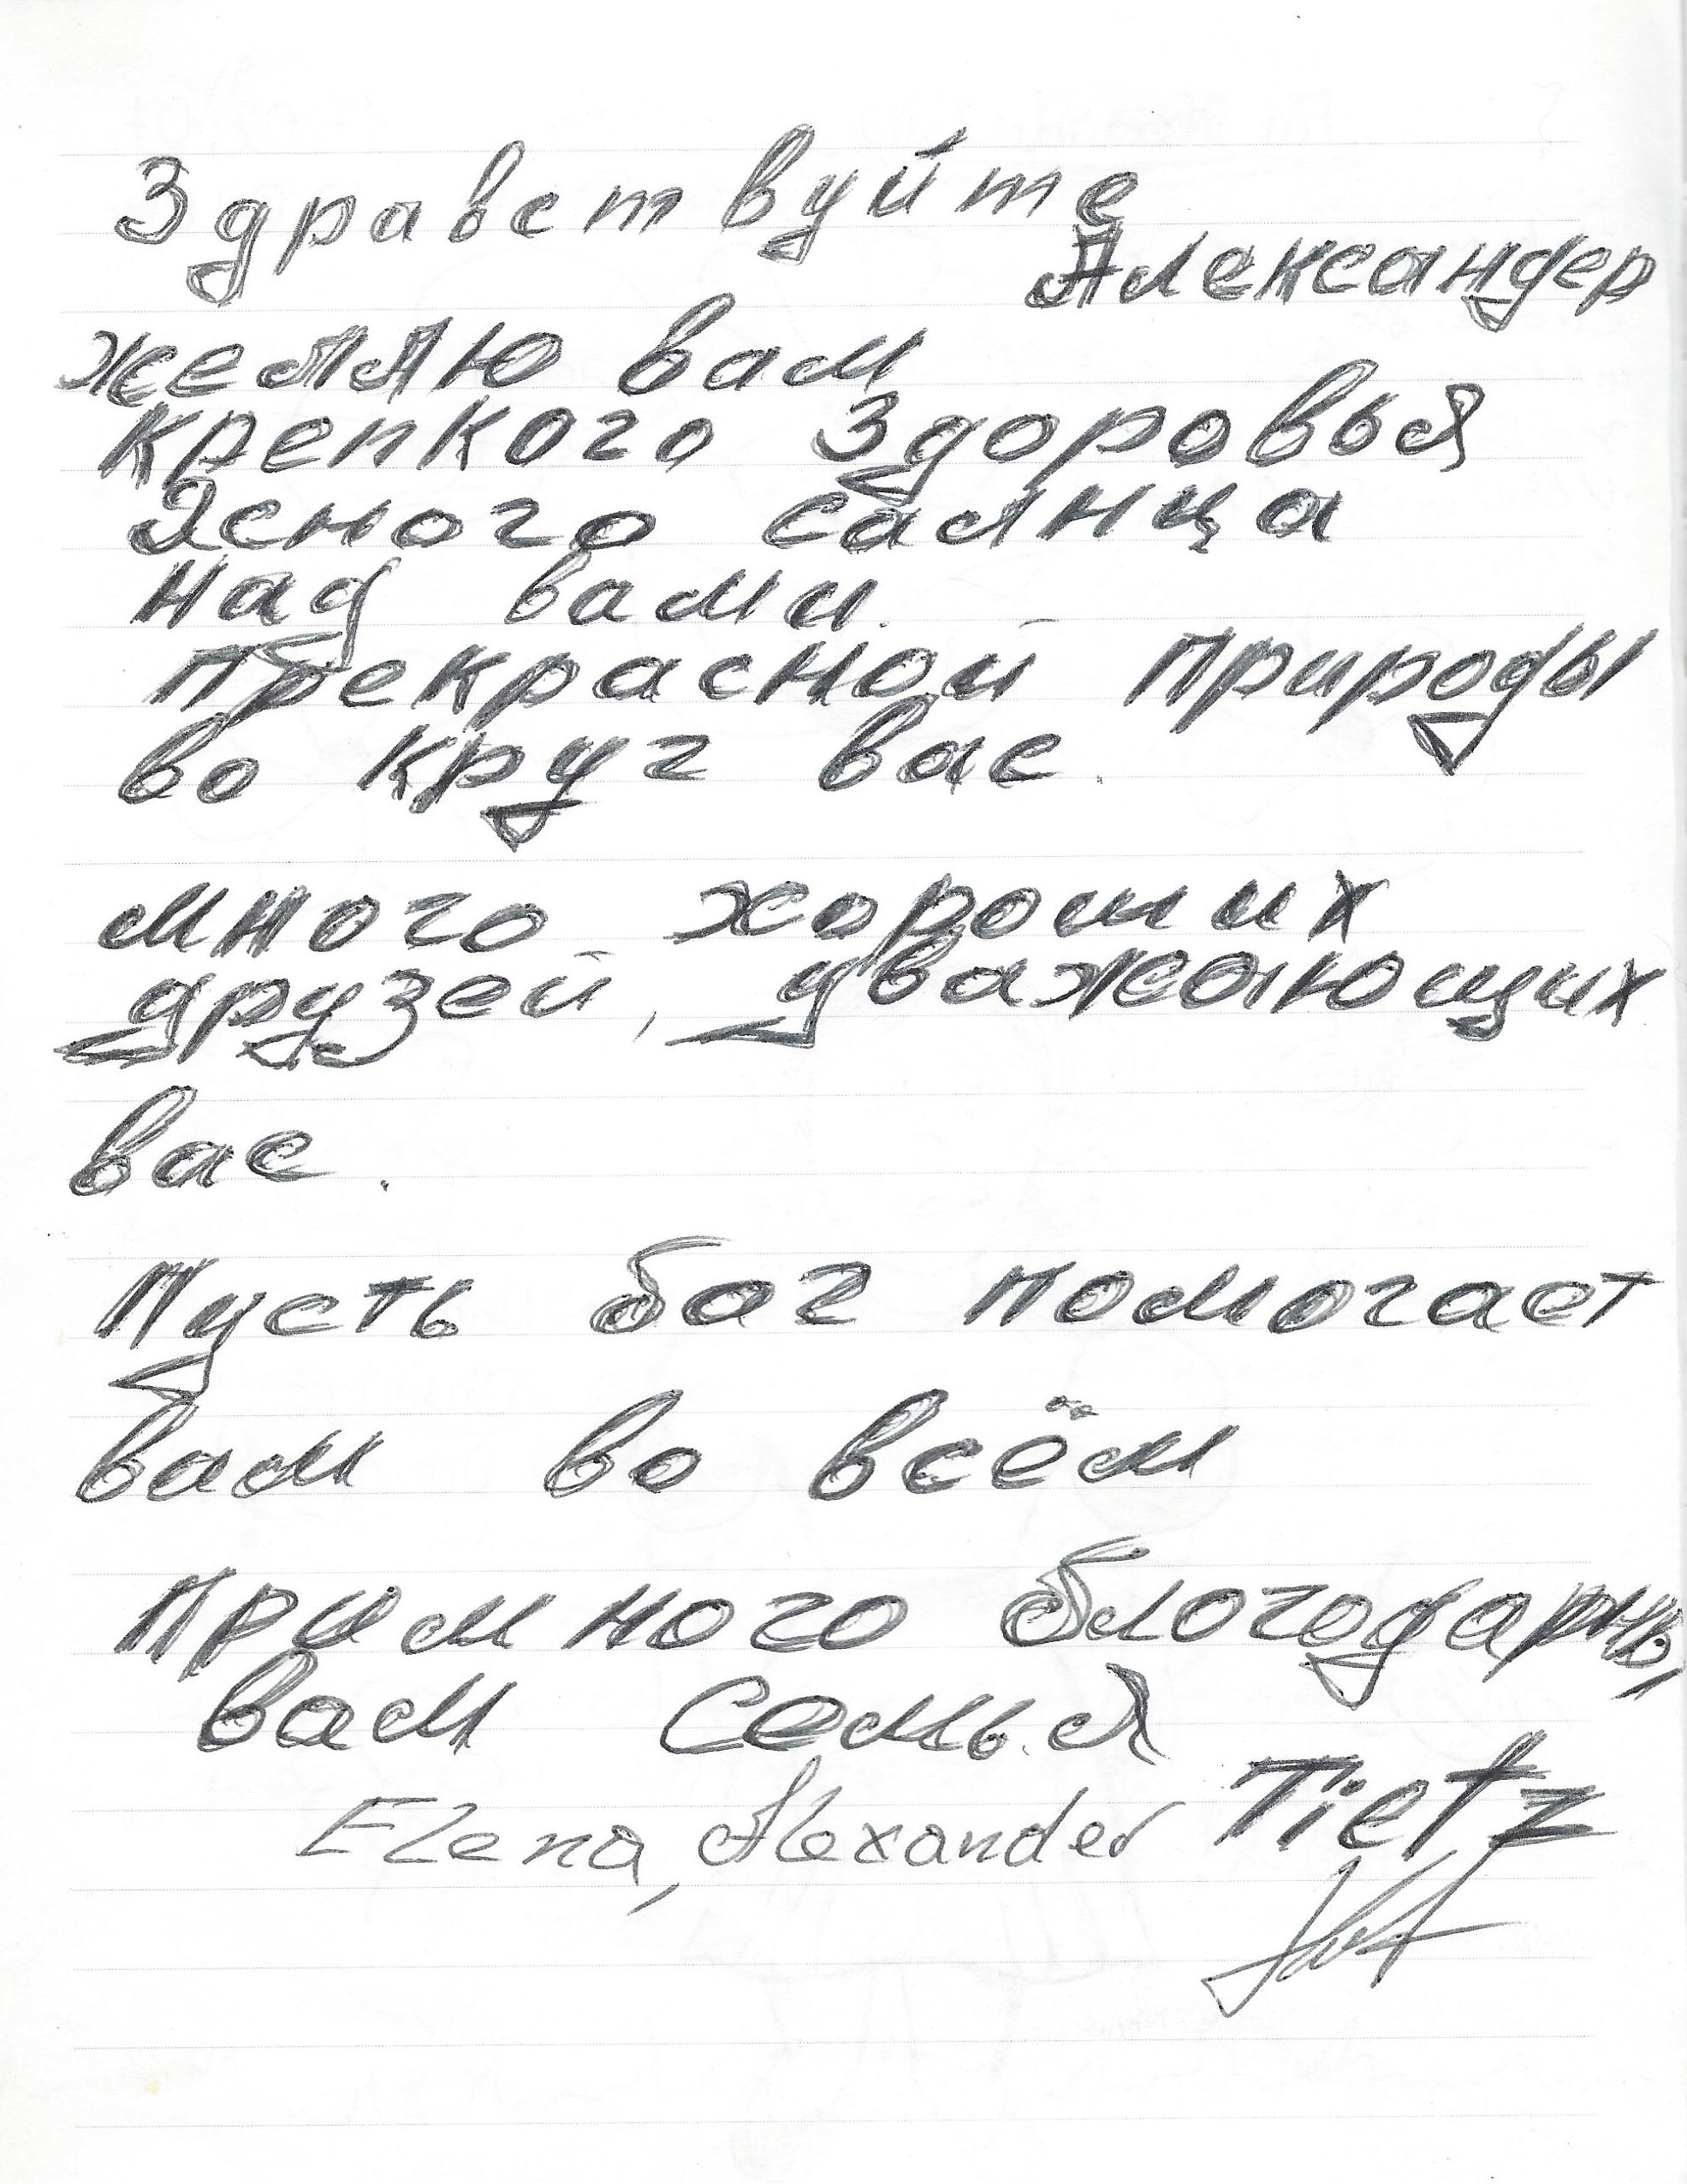 Здравствуйте
Александер
желяю вам
крепкого здоровья
Ясного салнца
над вами.
прекрасной природы
во круг вас.
много хороших
друзей, уважающих
вас.
Пусть бог помогает
вам во всём
Примного блогодарны,
вам Семья
Elena, Alexander Tietz